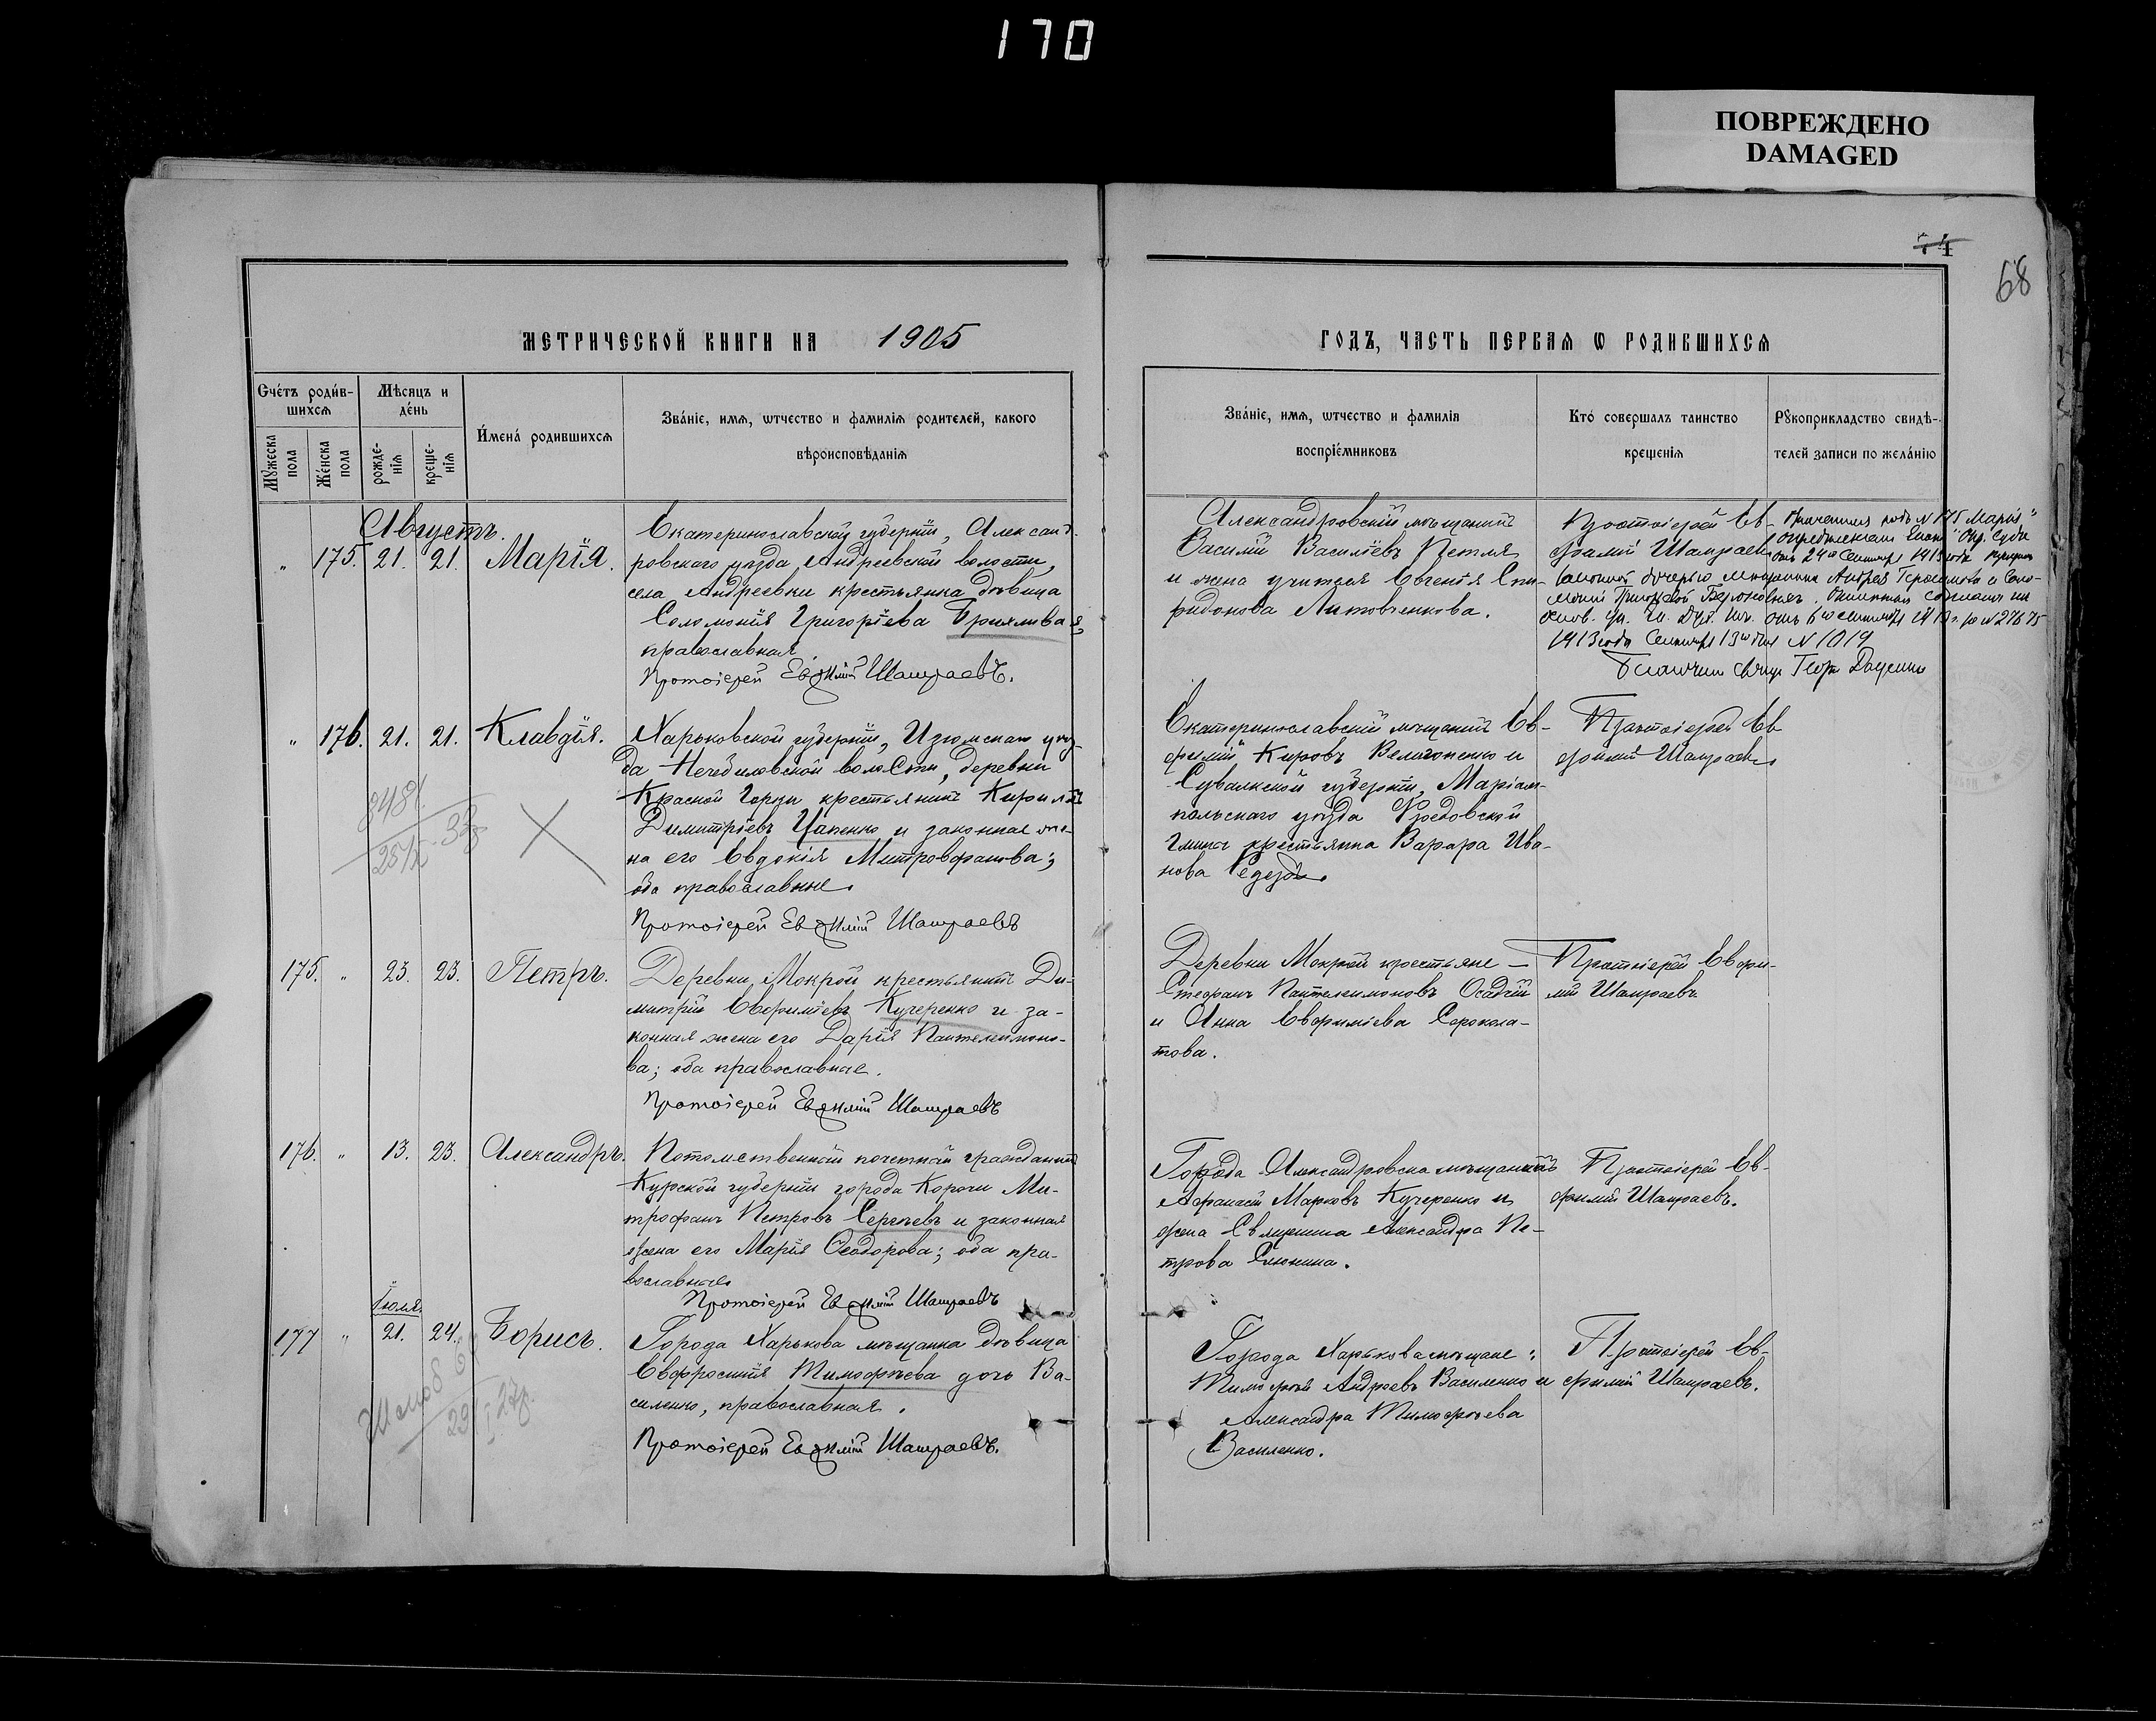 170
ПОВРЕЖДЕНО
DAMAGED
74
68
МЕТРИЧЕСКОЙ КНИГИ НА 1905
ГОДЪ, ЧАСТЬ ПЕРВАѦ Ѡ РОДИВШИХСѦ
Счéтъ роди́в-
шихсѧ
Мѣсяцъ и
дéнь
Мꙋжеска
пола
Жéнска
пола
рожде-
нїѧ
креще-
нїѧ
И́менá родившихсѧ
Звáнїе, имѧ, ѿчество и фамилїѧ родителей, какого
вѣроисповѣданїѧ
Звáнїе, имѧ, ѿчество и фамилїѧ
воспрїéмниковъ
Ктó совершалъ таинство
крещенїѧ
Рꙋкоприкладство свидѣ-
телей записи по желáнїю
Августъ.
„ 175. 21. 21. Марія.
Екатеринославской губерніи, Александ-
ровскаго уѣзда, Андреевской волости,
села Андреевки крестьянка дѣвица
Соломонія Григоріева
православная.
Протоіерей Евфимій Шамраевъ.
Александровскій мѣщанинъ
Василій Василіевъ Петля
и жена учителя Евгенія Спи-
ридонова Литовченкова.
Протоіерей Ев-
фимій Шамраевъ
175 Марія
1913 года Сентября 13го дня N 1019
„ 176. 21. 21. Клавдія.
Харьковской губерніи, Изюмскаго уѣз-
да Нечволовской волости, деревни
Красной Горки крестьянинъ Кириллъ
Димитріевъ Цапенко и законная же-
на его Евдокія Митрофанова;
оба православные.
Протоіерей Евфимій Шамраевъ
Екатеринославскій мѣщанинъ Ев-
фимій Кировъ Величоненко и
Сувалкской губерніи, Маріам-
польскаго уѣзда
гмины крестьянка Варвара Ива-
нова
Протоіерей Ев
фимій Шамраевъ
175. „ 23. 23. Петръ.
Деревни Мокрой крестьянинъ Ди-
митрій Евфиміевъ Кучеренко и за-
конная жена его Дарія Пантелеимоно-
ва; оба православные.
Протоіерей Евфимій Шамраевъ
Деревни Мокрой крестьяне —
Стефанъ Пантелеимоновъ Осадчій
и Анна Евфиміева Сорокола-
това.
Протоіерей Евфи-
мій Шамраевъ
176. „ 13. 23. Александръ.
Потомственный почетный гражданинъ
Курской губерніи города Корочи Ми-
трофанъ Петровъ Сергѣевъ и законная
жена его Марія Ѳеодорова; оба пра-
вославные
Протоіерей Евфимій Шамраевъ
Города Александровска мѣщанинъ
Афанасій Марковъ Кучеренко и
жена Священника Александра Пе-
трова Слюнина.
Протоіерей Ев-
фимій Шамраевъ.
Іюля.
177 „ 21. 24. Борисъ.
Города Харькова мѣщанка дѣвица
Евфросинія Тимофѣева дочь Ва-
силенко, православная.
Протоіерей Евфимій Шамраевъ.
Города Харькова мѣщане:
Тимофей Андреевъ Василенко и
Александра Тимофѣева
Василенко.
Протоіерей Ев-
фимій Шамраевъ.